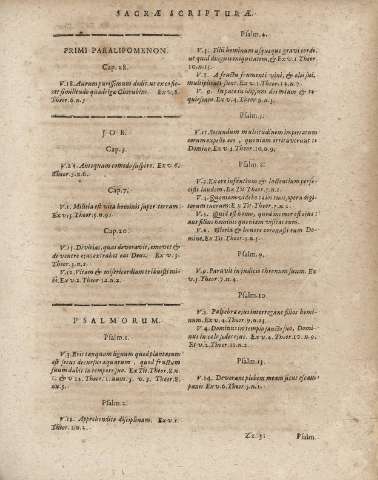 SACRÆ SCRIPTURÆ.
PRIMI PARALIPOMENON.
Cap. 28.
V.18. Aurum purissimum dedit, ut ex eo fieret similitudo quadrigæ Cherubim. Ex v.
Theor.6.n.5
JOB.
Cap.3.
V.24. Antequam comedo suspiro. Ex v.6.
Theor.5.n.6.
Cap.7.
V.1. Militia est vita hominis super terram:
Ex v.5. Theor.5.n.9.
Cap.20.
V.15. Divitias, quas devoravit, evomet & de ventre ejus extrahet eas Deus. Ex v.
Theor.3.n.2.
V.12. Vitam & misericordiam tribuisti mihi. Ex v.2. Theor.12.n.2.
PSALMORUM.
Psalm.1.
V.3. Erit tanquam lignum quod plantatum
est secus decursus aquarum quod fructum
suum dabit in tempore suo. Ex Tit. Theor.8.n.
1. & v.12. Theor.1.num.5. v.3. Theor.8.
n.5.
Psalm.2.
V.12. Apprehendite disciplinam. Ex v.1.
Theor.2.n.2.
Psalm.4.
V.3. Filii hominum usquequo gravi corde,
ut quid diligitis vanitatem, & Ex v.1 Theor.
10.n.15.
V.8. A fructu frumenti vini, & olei sui,
multiplicati sunt. Ex v.1. Theor.14.n.7.
V.9. In pace in idipsum dormiam & requiescam. Ex v.4. Theor.9.n.1
Psalm.5.
V.11. Secundum multitudinem impietatum
eorum expelle eos, quoniam irritaverunt te
Domine. Ex v.3. Theor.10.n.9.
Psalm.8.
V.3. Ex ore infantium & lactentium perfecisti laudem. Ex Tit. Theor.7.n.1.
V.4. Quoniam videbo cælos tuos, opera digitorum tuorum. Ex Tit. Theor.7.n.2.
V.5. Quid est homo, quod memor es ejus:
aut filius hominis quoniam visitas eum.
V.6. Gloria & honore coronasti eum Domine. Ex v.5. Theor.3.n.5.
Psalm.9.
V.9. Paravit in judicio thronum suum. Ex
v.3. Theor.7.n.1.
Psalm.10
V.5. Palpebræ ejus interrogant filios hominum. Ex v.4. Theor.9.n.15.
V.4. Dominus in templo sancto suo, Dominus in cælo sedes ejus. Ex v.4. Theor.11.n.2.
Ex v.2. Theor.12.n.2.
Psalm.13.
V.14. Devorant plebem meam sicut escam
panis. Ex v.6. Theor.3.n.2.
Zz 3
Psalm.